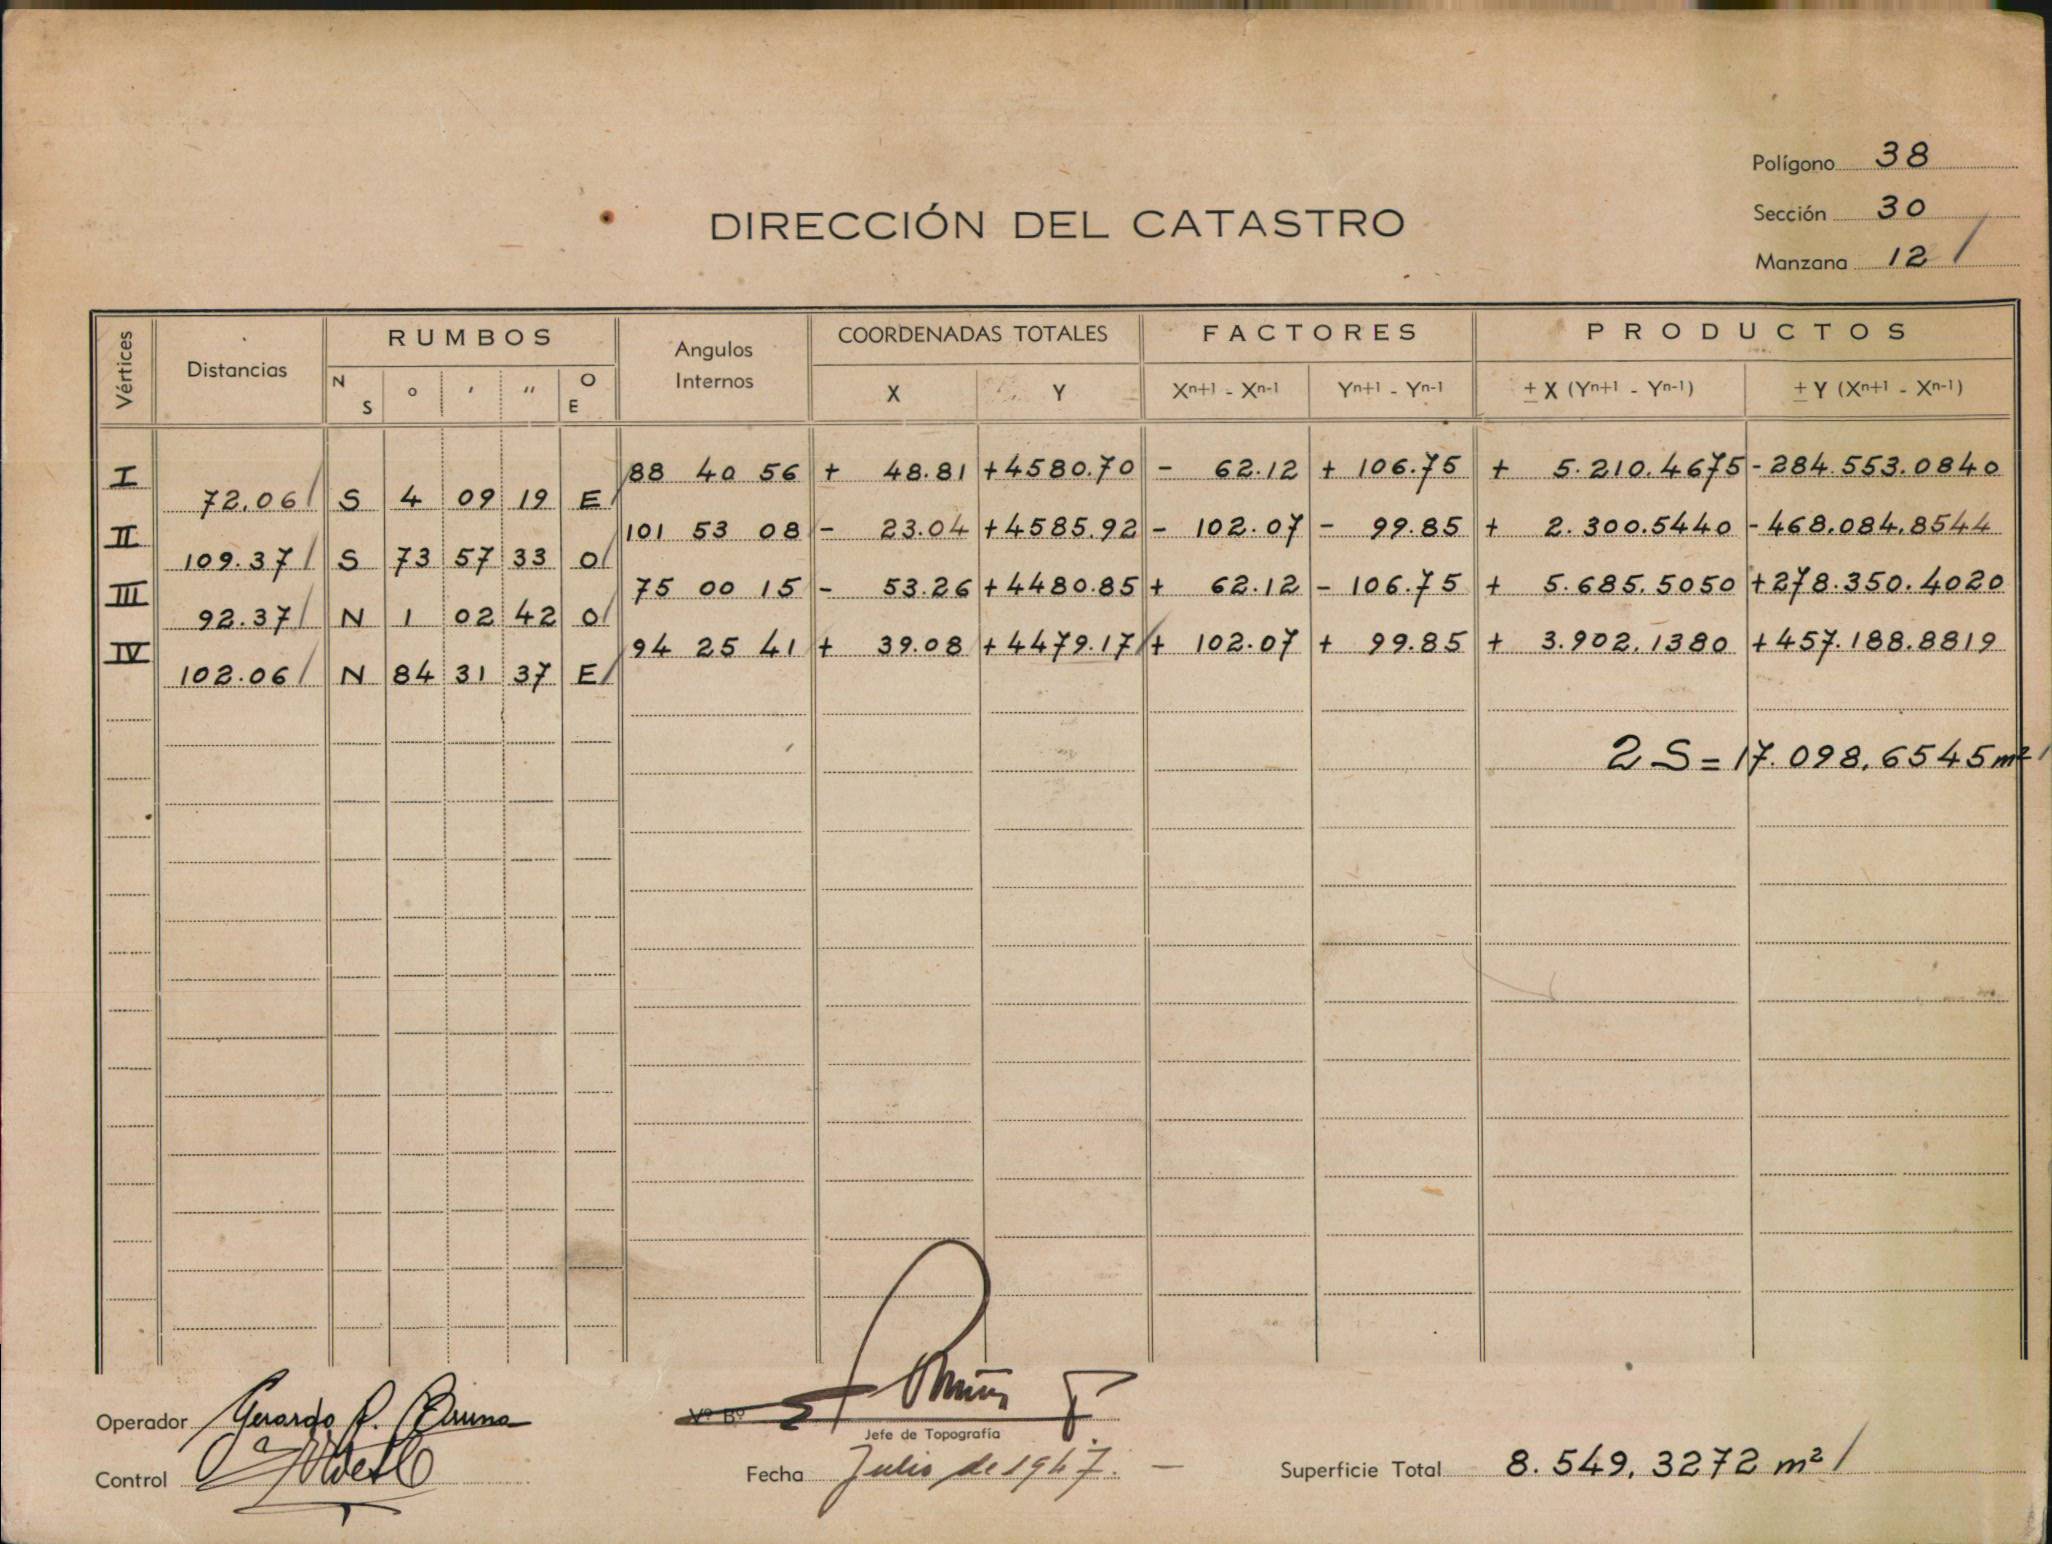 Polígono 38
Sección 30
Manzana 12
DIRECCIÓN DEL CATASTRO
Vértices Distancias RUMBOS Angulos Internos COORDENADAS TOTALES FACTORES PRODUCTOS
N S ° ' " O E X Y Xn+1 - Xn-1 Yn+1 - Yn-1 ± X (Yn+1 - Yn-1) ± Y (Xn+1 - Xn-1)
I 88 40 56 + 48.81 +4580.70 - 62.12 + 106.75 + 5.210.4675 -284.553.0840
72.06 S 4 09 19 E
II 101 53 08 - 23.04 +4585.92 - 102.07 - 99.85 + 2.300.5440 -468.084.8544
109.37 S 73 57 33 O
III 75 00 15 - 53.26 +4480.85 + 62.12 - 106.75 + 5.685.5050 +278.350.4020
92.37 N 1 02 42 O
IV 94 25 41 + 39.08 +4479.17 + 102.07 + 99.85 + 3.902.1380 +457.188.8819
102.06 N 84 31 37 E
2 S = 17.098,6545 m²
Operador Gerardo P. Bruna
Vº Bº
Jefe de Topografía
Control
Fecha Julio de 1947. —
Superficie Total 8.549,3272 m²